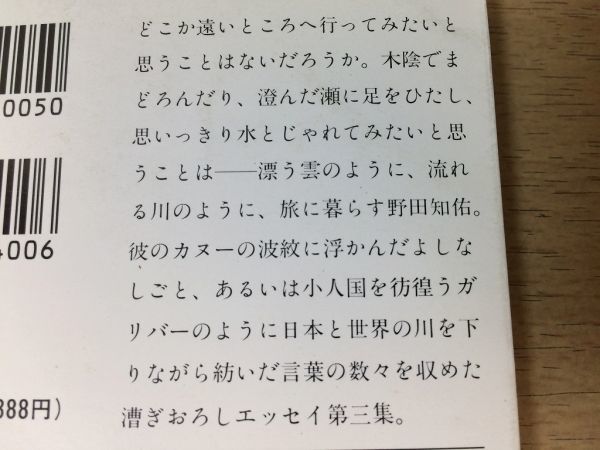 どこか遠いところへ行ってみたいと
思うことはないだろうか。木陰でま
どろんだり、澄んだ瀬に足をひたし、
思いっきり水とじゃれてみたいと思
うことは――漂う雲のように、流れ
る川のように、旅に暮らす野田知佑。
彼のカヌーの波紋に浮かんだよしな
しごと、あるいは小人国を彷徨うガ
リバーのように日本と世界の川を下
りながら紡いだ言葉の数々を収めた
漕ぎおろしエッセイ第三集。
0050
4006
888円)